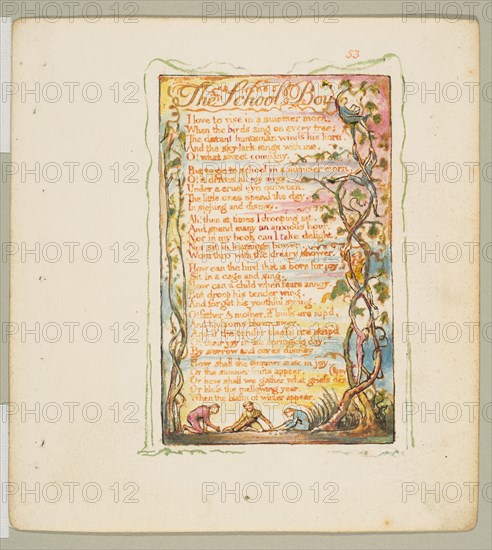 53
The School Boy
I love to rise in a summer morn,
When the birds sing on every tree;
The distant huntsman winds his horn,
And the sky-lark sings with me.
O! what sweet company.
But to go to school in a summer morn,
O! it drives all joy away;
Under a cruel eye outworn,
The little ones spend the day,
In sighing and dismay.
Ah! then at times I drooping sit,
And spend many an anxious hour,
Nor in my book can I take delight,
Nor sit in learnings bower,
Worn thro' with the dreary shower.
How can the bird that is born for joy,
Sit in a cage and sing.
How can a child when fears annoy,
But droop his tender wing,
And forget his youthful spring.
O! father & mother, if buds are nip'd,
And blossoms blown away,
And if the tender plants are strip'd
Of their joy in the springing day,
By sorrow and cares dismay,
How shall the summer arise in joy
Or the summer fruits appear,
Or how shall we gather what griefs des
Or bless the mellowing year,
When the blasts of winter appear.
PHOTO 12